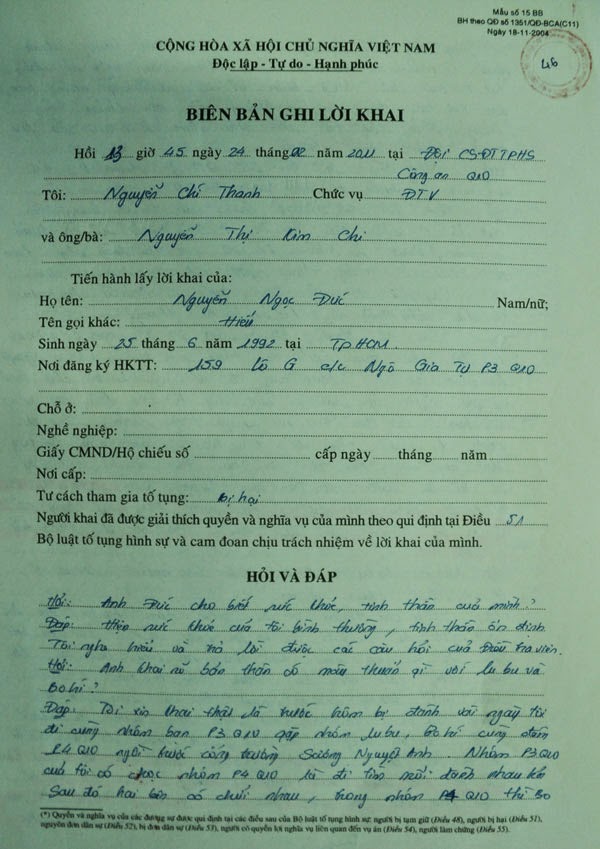 Mẫu số 15 BB
BH theo QĐ số 1351/QĐ-BCA(C11)
Ngày 18-11-2004
46
CỘNG HÒA XÃ HỘI CHỦ NGHĨA VIỆT NAM
Độc lập - Tự do - Hạnh phúc
BIÊN BẢN GHI LỜI KHAI
Hồi 13 giờ 45 ngày 24 tháng 02 năm 2011 tại Đội CSĐTTPHS
Công an Q10
Tôi: Nguyễn Chí Thanh Chức vụ ĐTV
và ông/bà: Nguyễn Thị Kim Chi
Tiến hành lấy lời khai của:
Họ tên: Nguyễn Ngọc Đức Nam/nữ;
Tên gọi khác: Hiếu
Sinh ngày 25 tháng 6 năm 1992 tại TP HCM
Nơi đăng ký HKTT: 159 Lô G c/c Ngô Gia Tự P3 Q10
Chỗ ở:
Nghề nghiệp:
Giấy CMND/Hộ chiếu số cấp ngày tháng năm
Nơi cấp:
Tư cách tham gia tố tụng: bị hại
Người khai đã được giải thích quyền và nghĩa vụ của mình theo qui định tại Điều 51
Bộ luật tố tụng hình sự và cam đoan chịu trách nhiệm về lời khai của mình.
HỎI VÀ ĐÁP
Hỏi: Anh Đức cho biết sức khỏe, tinh thần của mình?
Đáp: Hiện sức khỏe của tôi bình thường, tinh thần ổn định
Tôi nghe hiểu và trả lời được các câu hỏi của Điều tra viên.
Hỏi: Anh khai rõ bản thân có mâu thuẫn gì với lu bu và
Bo hí?
Đáp: Tôi xin khai thật là trước hôm bị đánh vài ngày tôi
đi cùng nhóm bạn P3 Q10 gặp nhóm lu bu, Bo hí cùng đám
P4 Q10 ngồi trước công trường Sương Nguyệt Anh Nhóm P3 Q10
của tôi có chọc nhóm P4 Q10 là đi tìm mũi đánh nhau
Sau đó hai bên có chửi nhau, trong nhóm P4 Q10 thì Bo
(*) Quyền và nghĩa vụ của các đương sự được qui định tại các điều sau của Bộ luật tố tụng hình sự: người bị tạm giữ (Điều 48), người bị hại (Điều 51),
nguyên đơn dân sự (Điều 52), bị đơn dân sự (Điều 53), người có quyền lợi nghĩa vụ liên quan đến vụ án (Điều 54), người làm chứng (Điều 55).